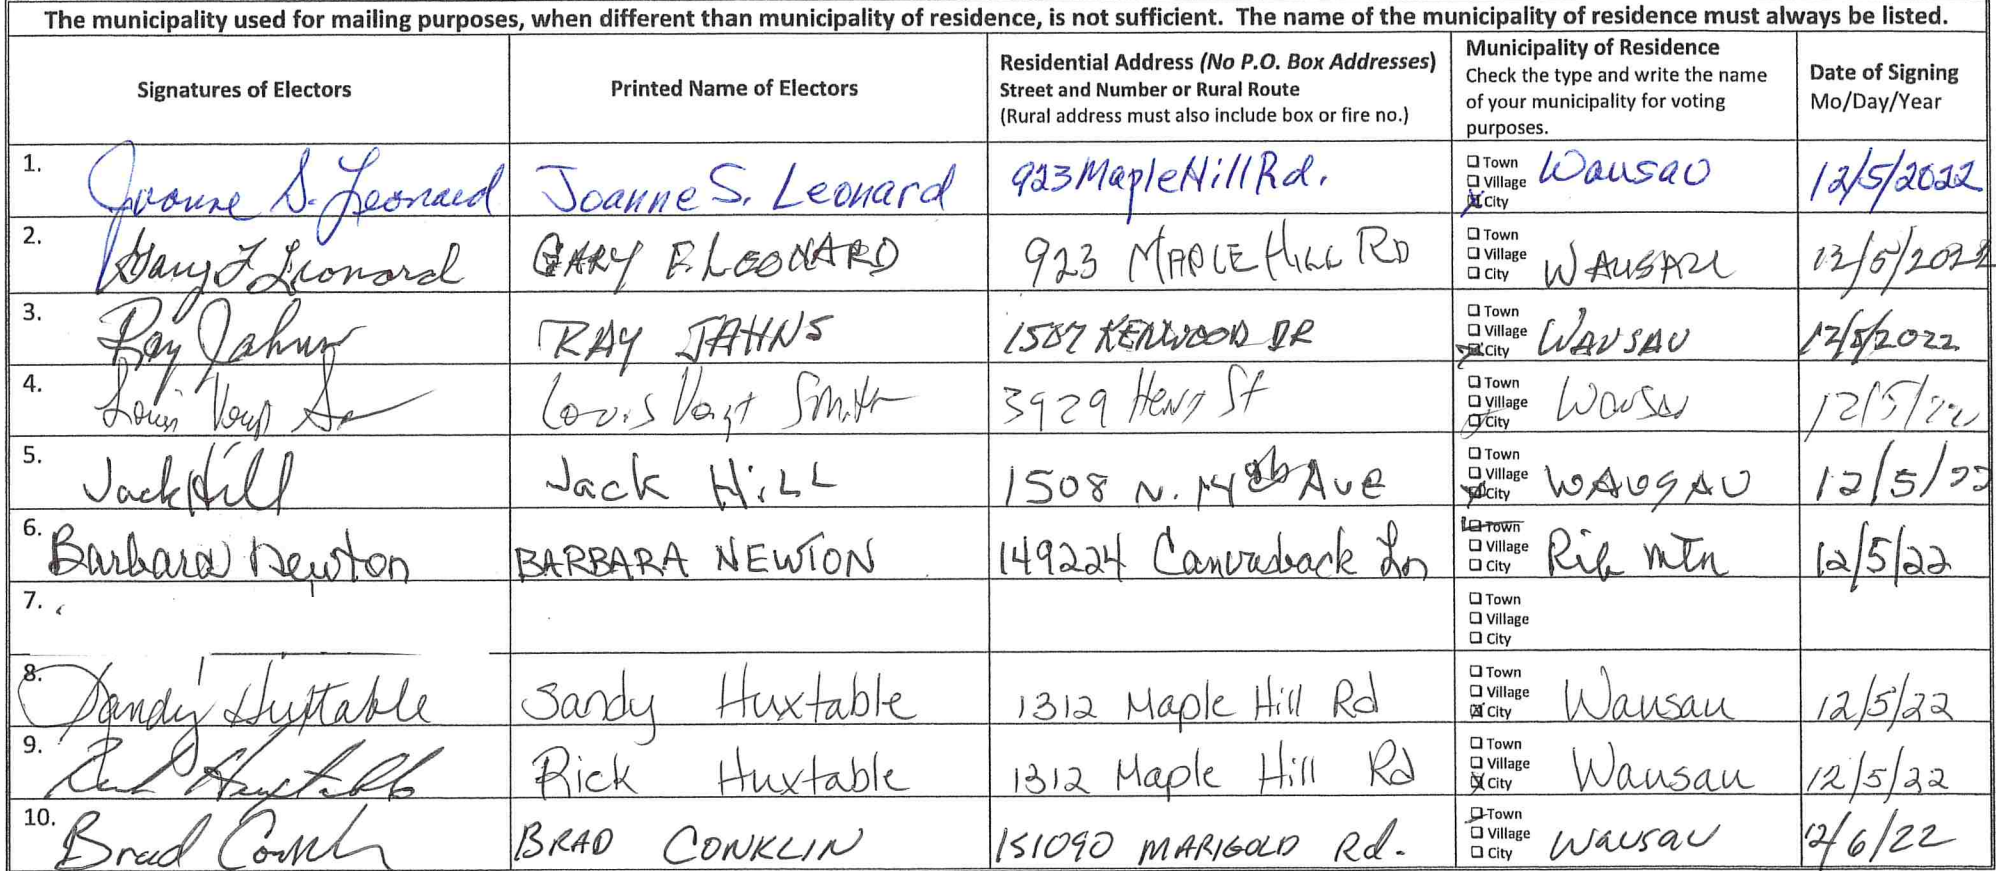 The municipality used for mailing purposes, when different than municipality of residence, is not sufficient. The name of the municipality of residence must always be listed.
Signatures of Electors
Printed Name of Electors
Residential Address (No P.O. Box Addresses)
Street and Number or Rural Route
(Rural address must also include box or fire no.)
Municipality of Residence
Check the type and write the name
of your municipality for voting
purposes.
Date of Signing
Mo/Day/Year
1. Joanne S. Leonard Joanne S. Leonard 923 Maple Hill Rd. Town Village City Wausau 12/5/2022
2. Gary F Leonard GARY F. LEONARD 923 MAPLE HILL RD Town Village City WAUSAU 12/5/2022
3. Ray Jahns RAY JAHNS 1507 KENWOOD DR Town Village City WAUSAU 12/5/2022
4. Louis Smith 3929 St Town Village City 12/5/22
5. Jack Hill Jack HiLL 1508 N. 14th Ave Town Village City WAUSAU 12/5/22
6. Barbara Newton BARBARA NEWTON 149224 Canvasback Ln Town Village City Rib Mtn 12/5/22
7. Town Village City
8. Sandy Huxtable Sandy Huxtable 1312 Maple Hill Rd Town Village City Wausau 12/5/22
9. Rick Huxtable Rick Huxtable 1312 Maple Hill Rd Town Village City Wausau 12/5/22
10. Brad Conklin BRAD CONKLIN 151090 MARIGOLD Rd. Town Village City Wausau 12/6/22